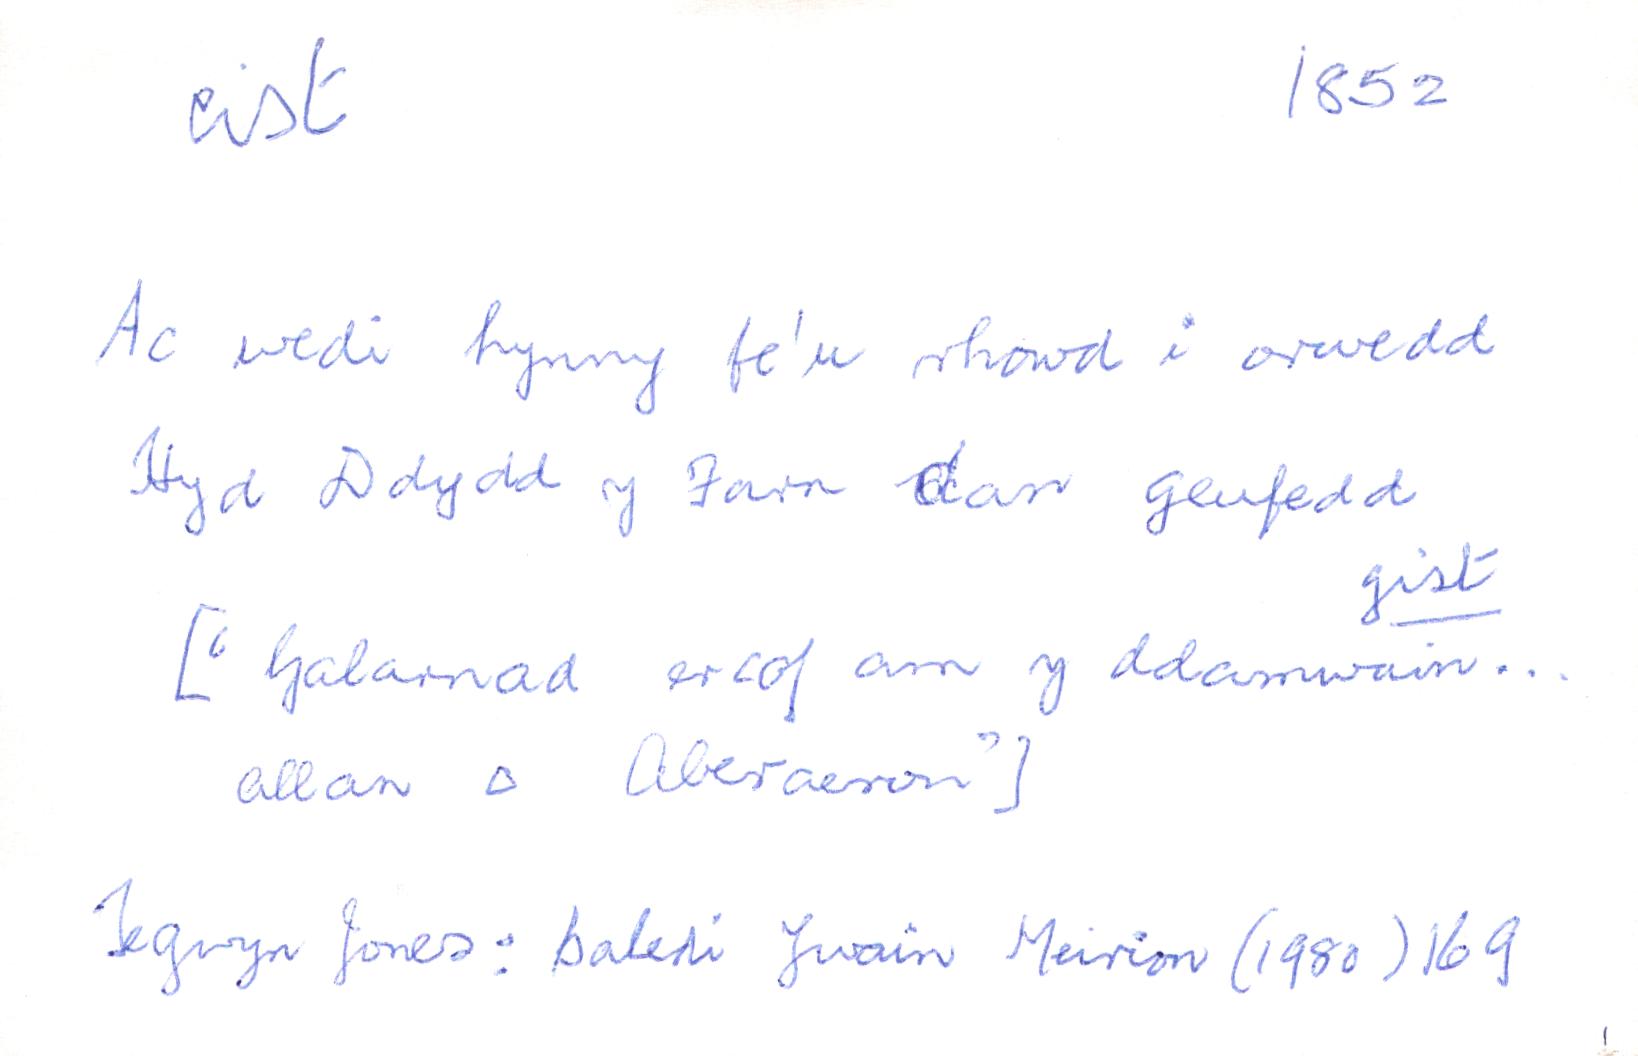 cist 1852
Ac wedi hynny fe'u rhowd i orwedd
Hyd Ddydd y Farn dan geufedd
gist
["Galarnad er cof am y ddamwain...
allan o Aberaeron"]
Tegwyn Jones: Baledi Ywain Meirion (1980) 169